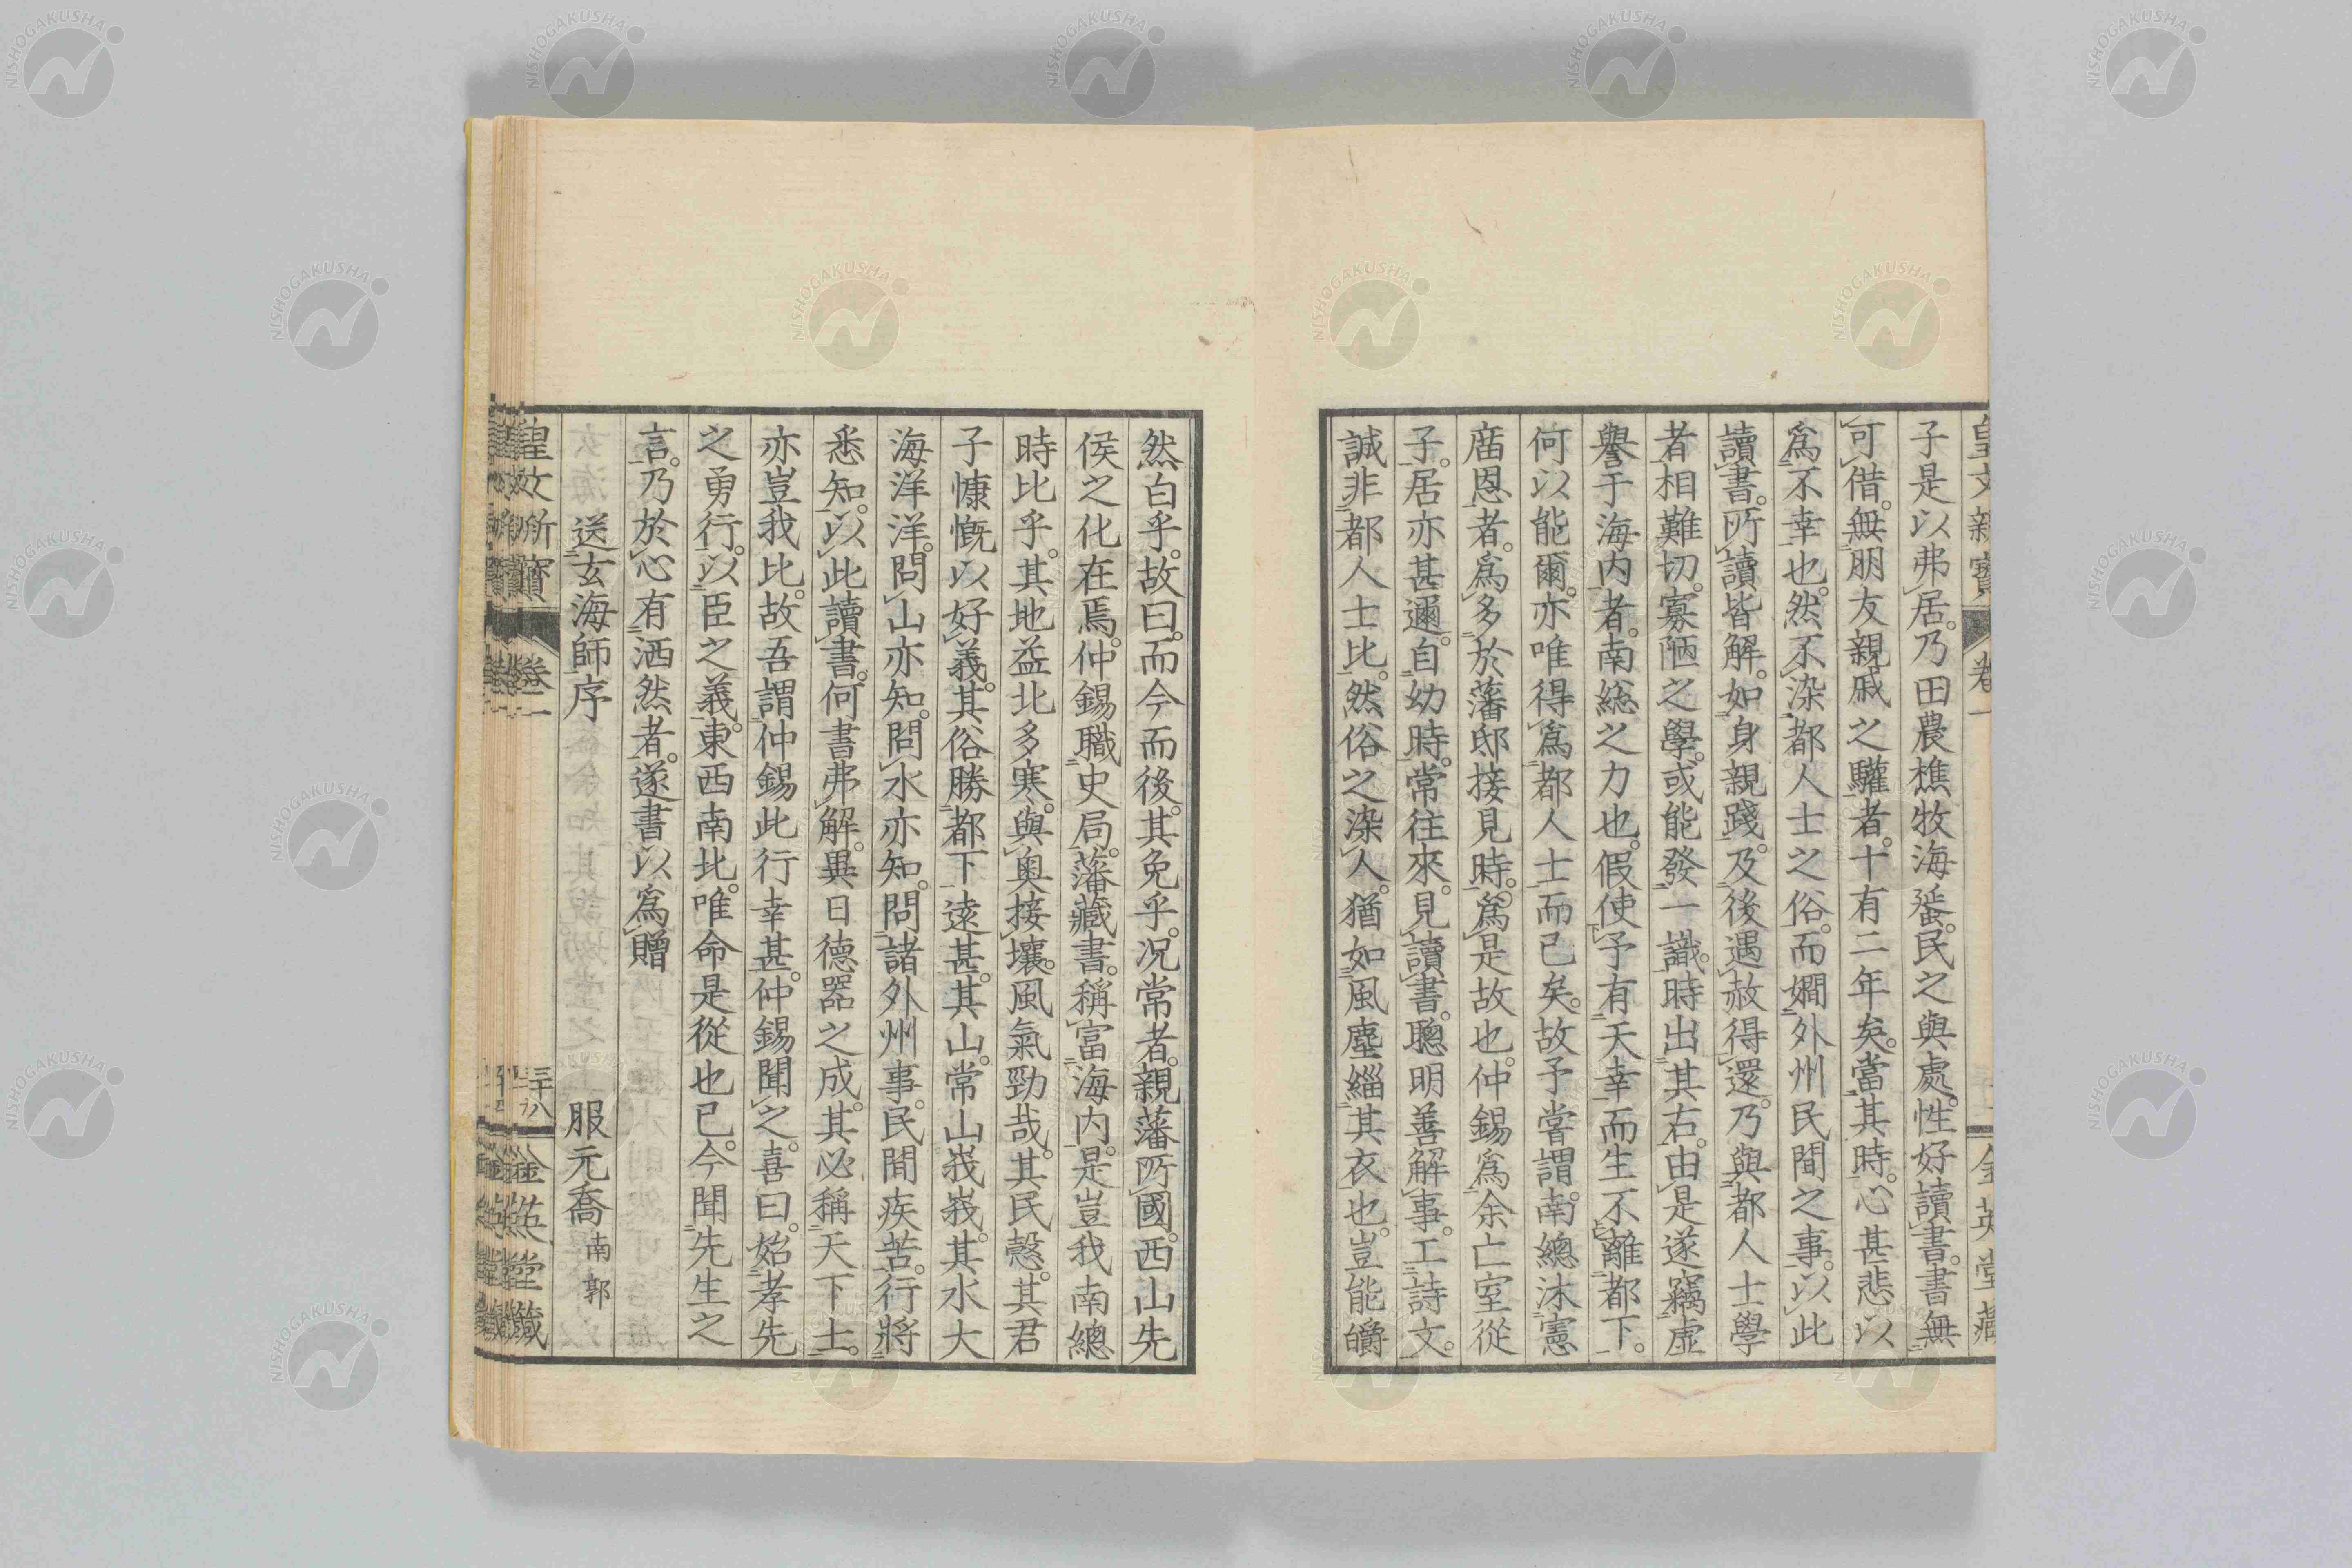 子是以弗居。乃田農樵牧海蜑。民之與處。性好讀書。書無
可借。無朋友親戚之驩者。十有二年矣。當其時。心甚悲以
爲不幸也。然不染都人士之俗。而嫺外州民間之事。以此
讀書。所讀皆解。如身親踐。及後遇赦得還。乃與都人士學
者相難切。寡陋之學。或能發一識。時出其右。由是遂竊虛
譽于海内者。南総之力也。假使予有天幸而生不離都下。
何以能爾。亦唯得爲都人士而已矣。故予嘗謂。南總沐憲
庿恩者。爲多於藩邸接見時。爲是故也。仲錫爲余亡室從
子。居亦甚邇。自幼時。常往來。見讀書。聰明善解事。工詩文。
誠非都人士比。然俗之染人。猶如風塵緇其衣也。豈能皭
然白乎。故曰。而今而後。其免乎。况常者。親藩所國。西山先
侯之化在焉。仲錫職史局。藩藏書。稱富海内。是豈我南總
時比乎。其地益北多寒。與奥接壤。風氣勁哉。其民愨。其君
子慷慨以好義。其俗勝都下遠甚。其山。常山峩峩。其水大
海洋洋。問山亦知。問水亦知。問諸外州事。民間疾苦。行將
悉知。以此讀書。何書弗解。異日德器之成。其必稱天下士。
亦豈我比。故吾謂仲錫此行幸甚。仲錫聞之。喜曰。始孝先
之勇行。以臣之義。東西南北。唯命是從也已。今聞先生之
言。乃於心有洒然者。遂書以爲贈
送玄海師序　服元喬南郭
皇文
卷一
三十八